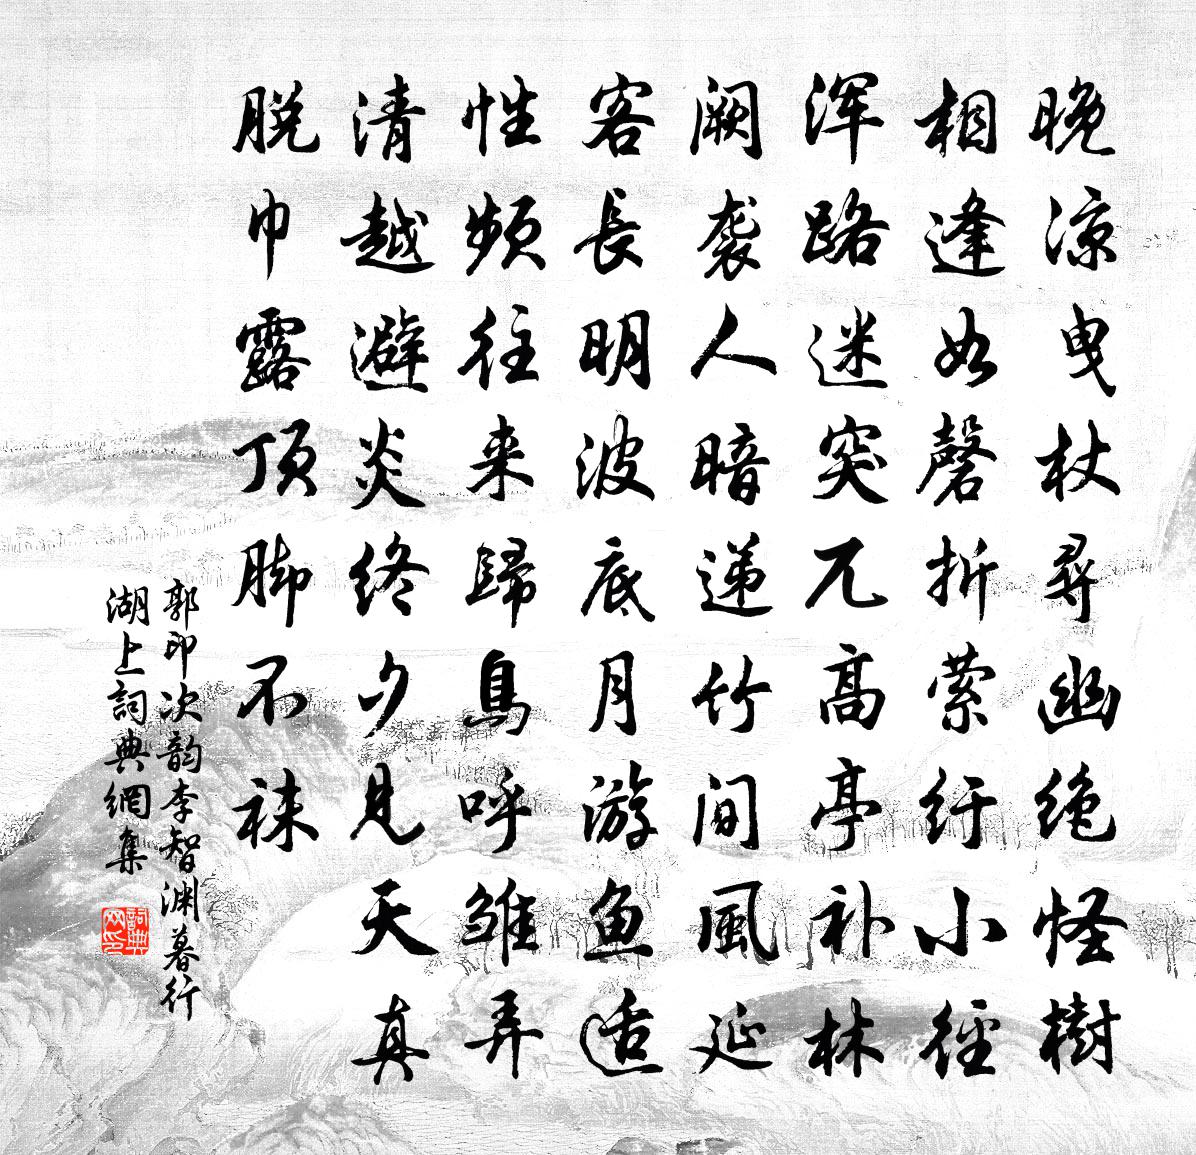 晚涼曳杖尋幽绝怪樹
相逢如磬折萦紆小徑
浑路迷突兀高亭补林
阙袭人暗递竹間風延
客長明波底月游魚适
性頻往来歸鳥呼雏弄
清越避炎終夕見天真
脱巾露頂脚不袜
郭印次韵李智渊暮行
湖上詞典網集
詞典
网印